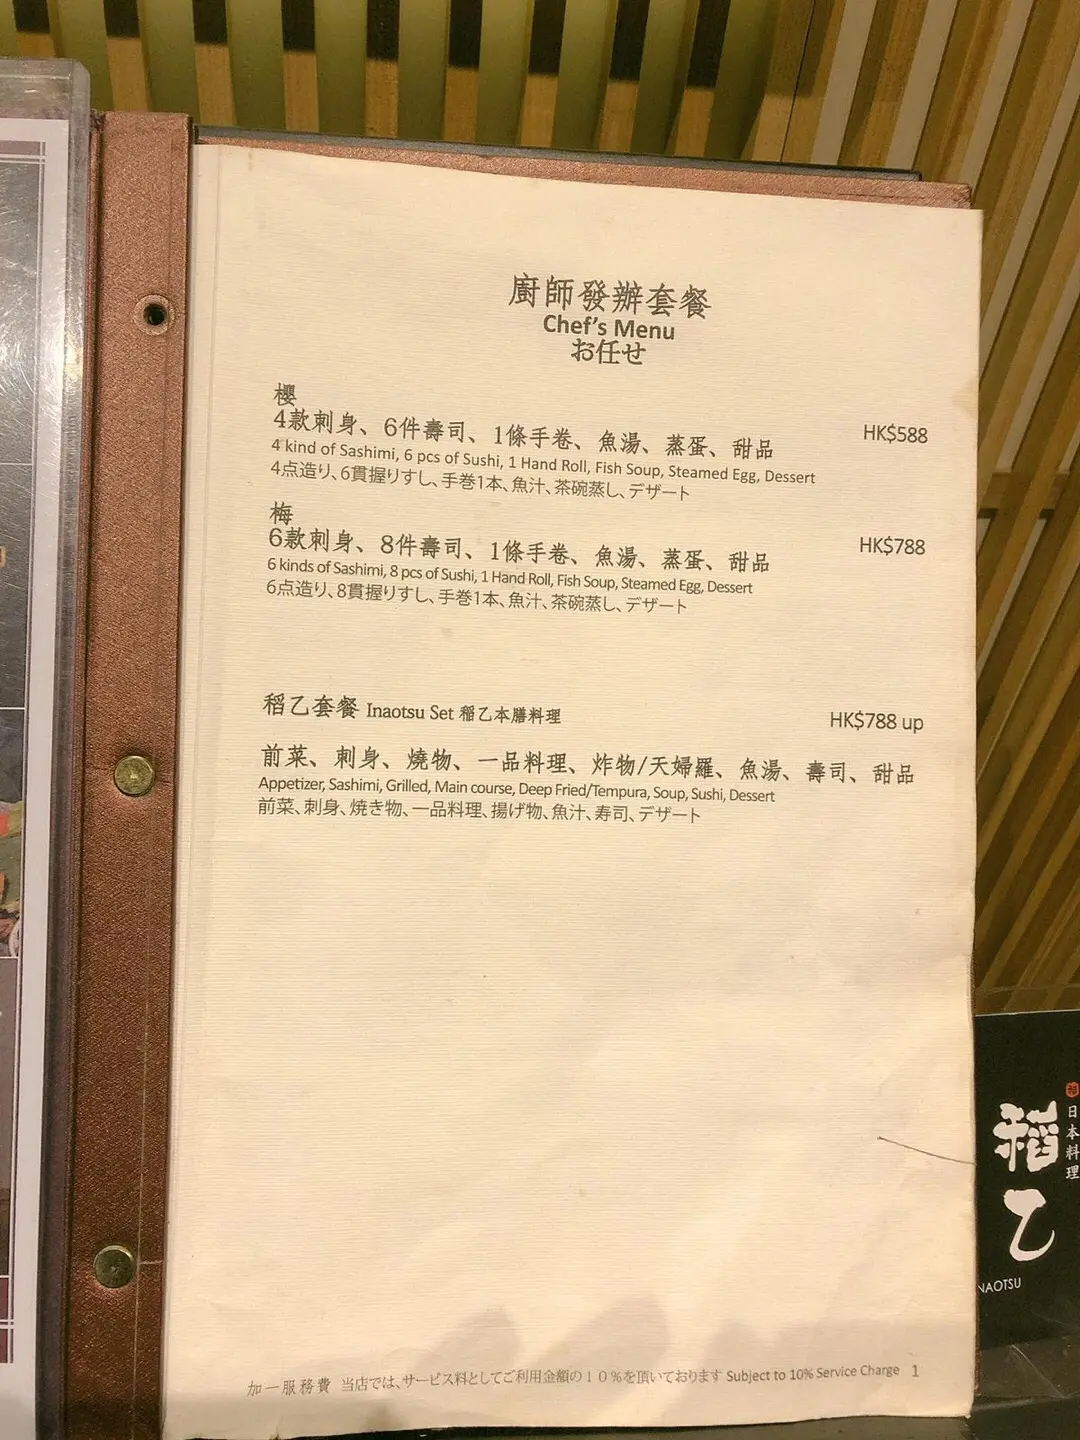 廚師發辦套餐
Chef's Menu
お任せ
櫻
4款刺身、6件壽司、1條手卷、魚湯、蒸蛋、甜品 HK$588
4 kind of Sashimi, 6 pcs of Sushi, 1 Hand Roll, Fish Soup, Steamed Egg, Dessert
4点造り、6貫握りすし、手巻1本、魚汁、茶碗蒸し、デザート
梅
6款刺身、8件壽司、1條手卷、魚湯、蒸蛋、甜品 HK$788
6 kinds of Sashimi, 8 pcs of Sushi, 1 Hand Roll, Fish Soup, Steamed Egg, Dessert
6点造り、8貫握りすし、手巻1本、魚汁、茶碗蒸し、デザート
稻乙套餐 Inaotsu Set 稲乙本膳料理 HK$788 up
前菜、刺身、燒物、一品料理、炸物/天婦羅、魚湯、壽司、甜品
Appetizer, Sashimi, Grilled, Main course, Deep Fried/Tempura, Soup, Sushi, Dessert
前菜、刺身、焼き物、一品料理、揚げ物、魚汁、寿司、デザート
加一服務費 当店では、サービス料としてご利用金額の１０％を頂いております Subject to 10% Service Charge 1
日本料理
稻乙
NAOTSU